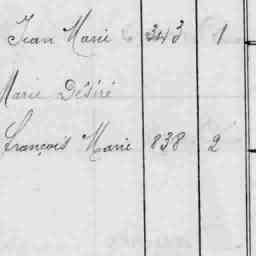 Jean Marie 343 1
Marie Désiré
François Marie 838 2